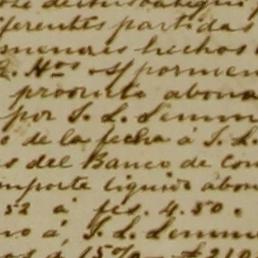 diferentes partidas
menores hechos
pormen
producto abona
por S. L. Lemm
o de la fecha á S. L.
s del Banco de Com
importe liquido abon
52 á fcs. 4.50.
no á, S. L. Lemm
a 15% — £210